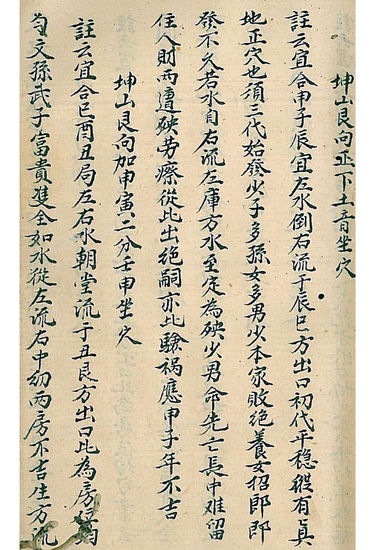 坤山艮向正下土音坐穴
註云宜合甲子辰宜左水倒右流于辰巳方出口初代平穩縱有真
地正穴也須二代始發少子多孫女多男少本家敗絕養女招郎即
發不久若水自右流左庫方水至定為殃少男命先亡長中難留
住入財而遭殃劳瘵從此出絕嗣亦此驗禍應申子年不吉
坤山艮向加申寅二分壬申坐穴
註云宜合巳酉丑局左右水朝堂流于丑艮方出口此為房房
支孫武子富貴雙全如水從左流右中幼兩房不吉生方流